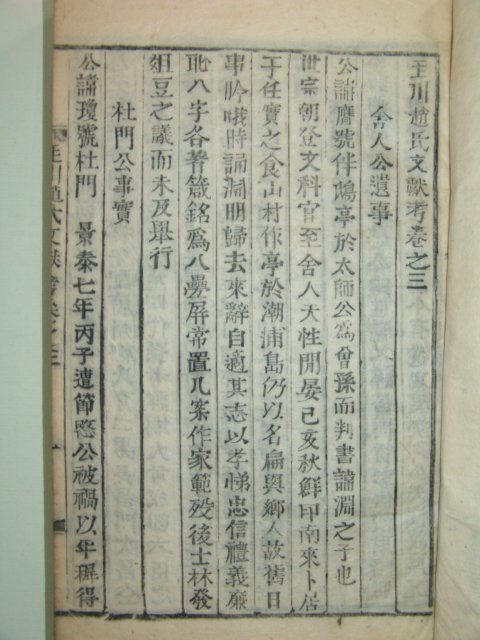 玉川趙氏文獻考卷之三
舍人公遺事
公諱膺號伴鷗亭於太師公爲曾孫而判書諱淵之子也
世宗朝登文科官至舍人天性閒晏己亥秋解印南來卜居
于任實之食山村作亭於潮浦島仍以名扁與鄉人故舊日
事吟哦時誦淵明歸去來辭自適其志以孝悌忠信禮義廉
恥八字各著箴銘爲八疊屛常置几案作家範歿後士林發
俎豆之議而未及擧行
杜門公事實
公諱瓊號杜門 景泰七年丙子遺節愍公被禍以年穉得
玉川趙氏文獻考卷之三